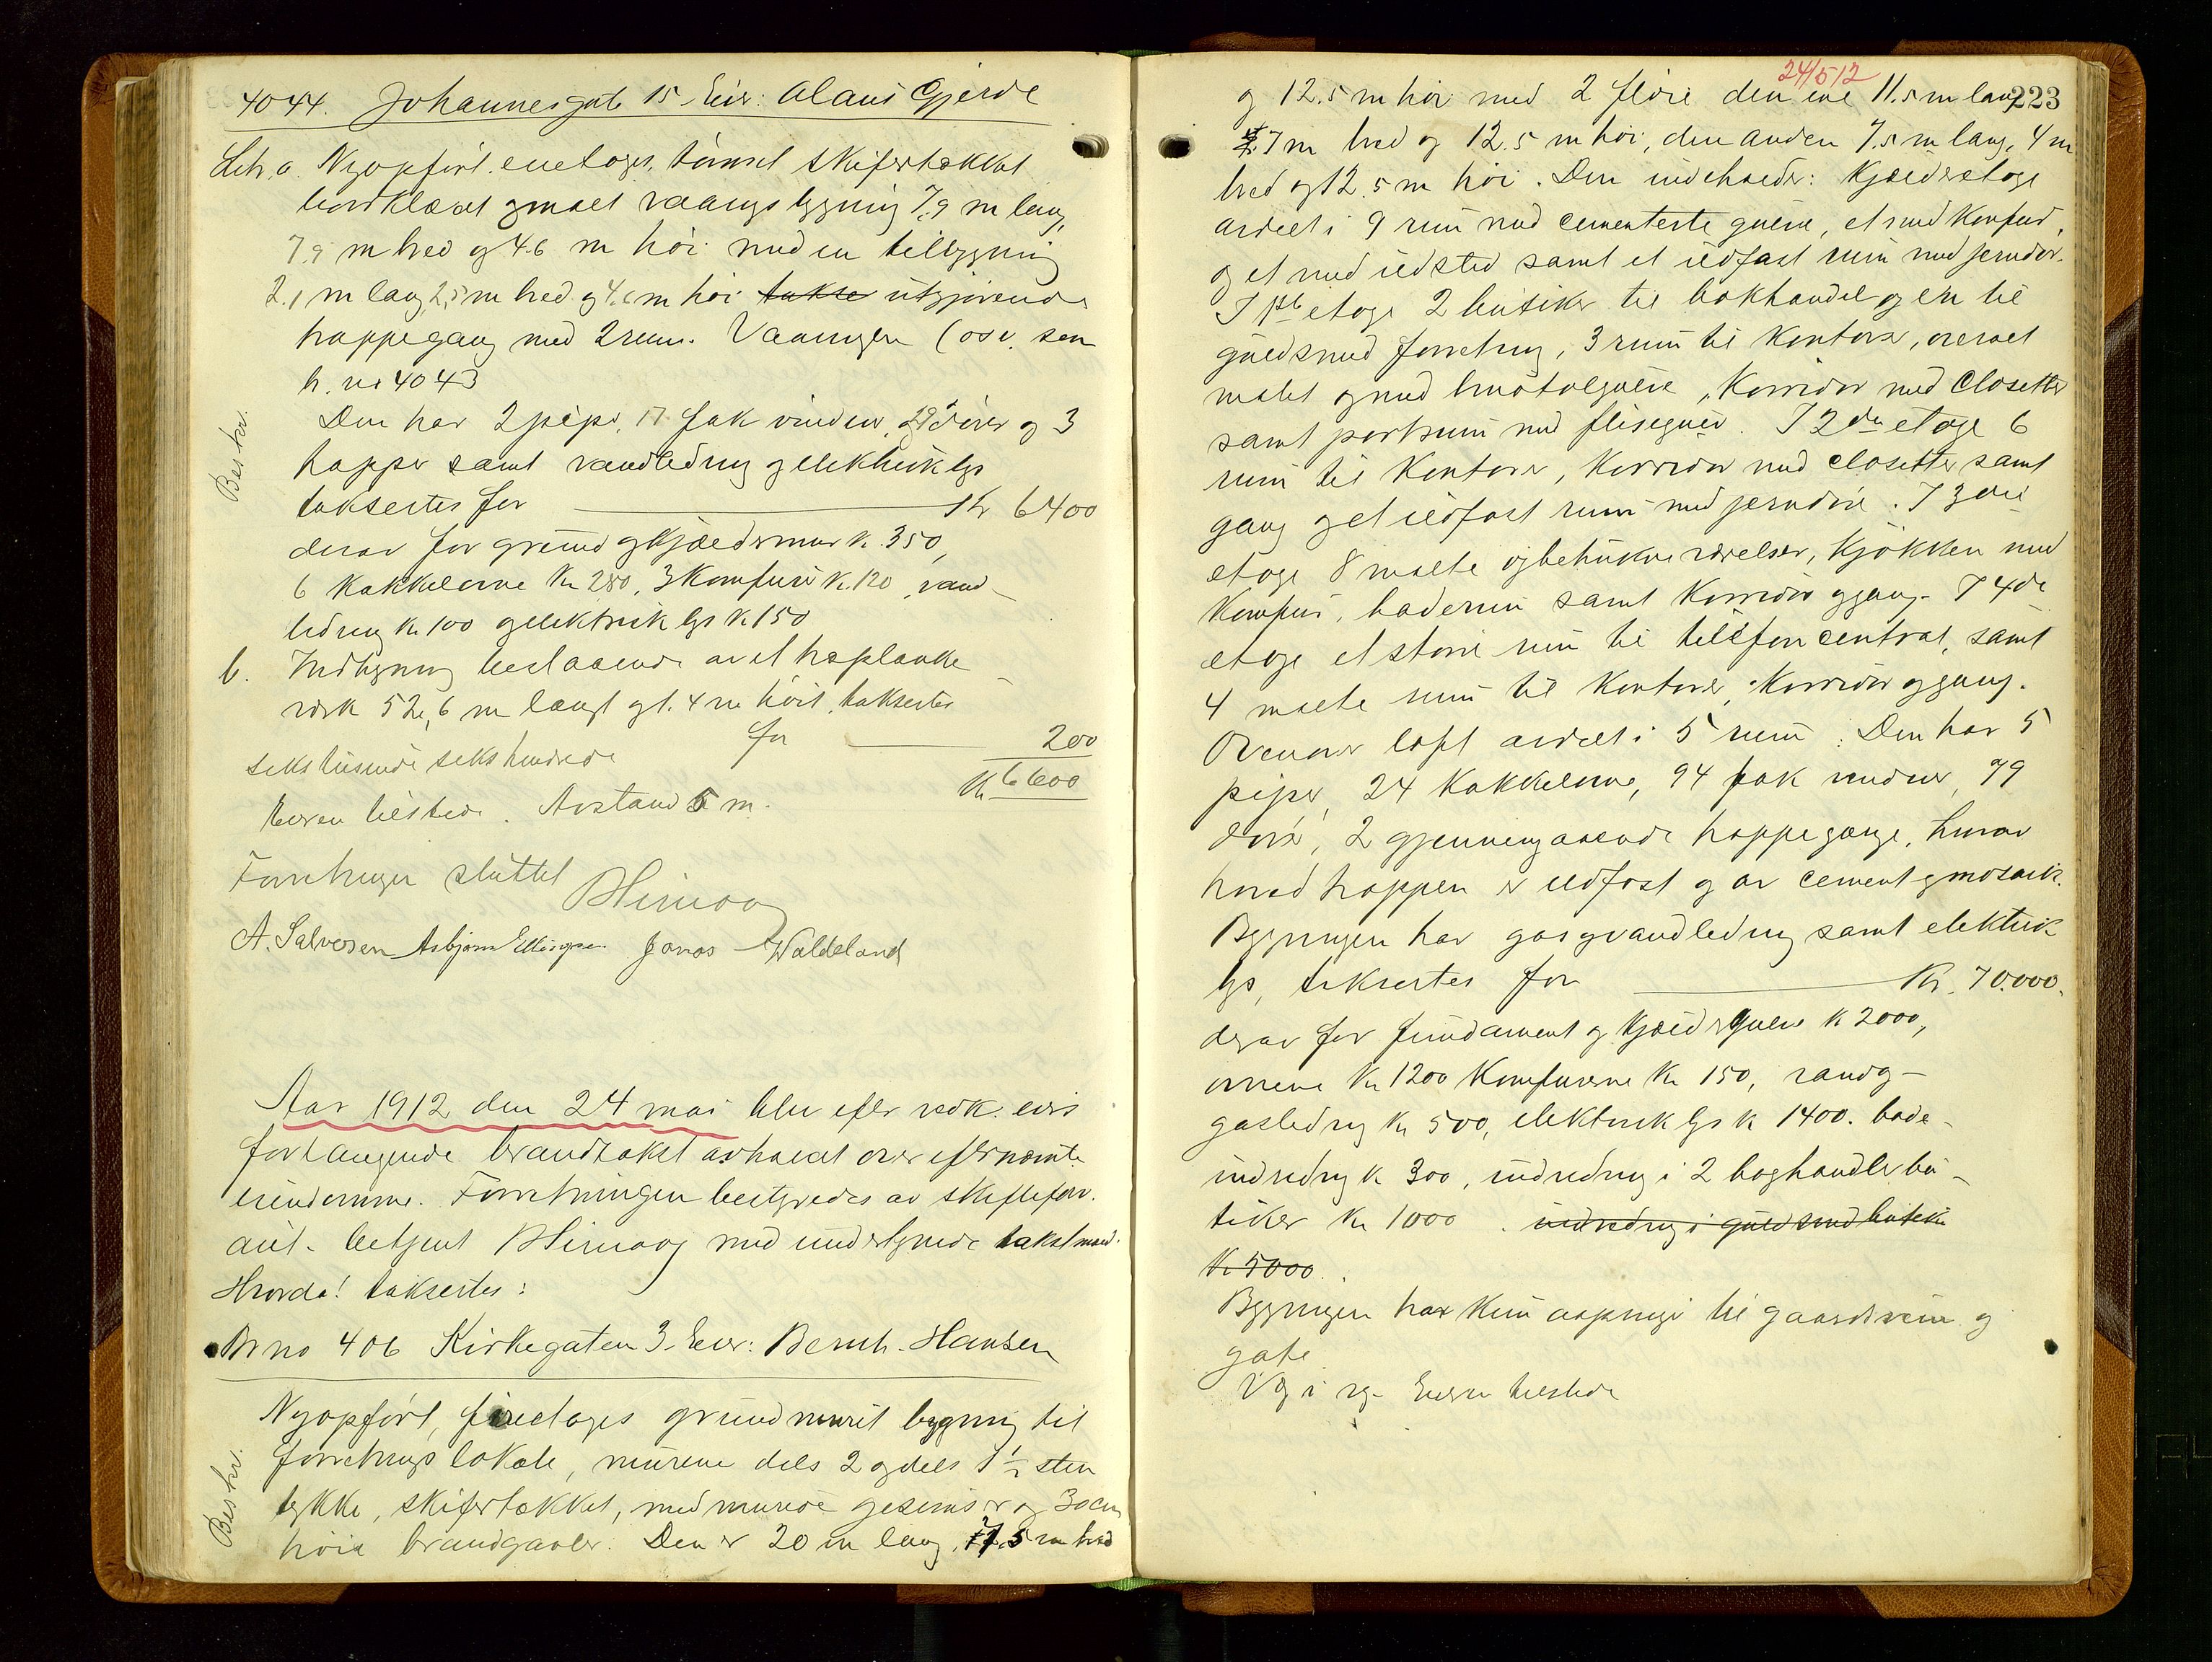 4044. Johannesgt. 15 - Eier: Olaus Gjerde
Litr. a. Nyopført enetages, tømret skifertækket
bordklædt & malt vaaningsbygning 7.9 m lang,
7.9 m bred og 4.6 m høi med en tilbygning
2.1 m lang, 2.5 m bred og 4.6 m høi takse utgjørende
trappegang med 2 rum. Vaaningen (osv. som
br. no 4043
Beskr.
Den har 2 piper, 17 fak vinduer, dører og 3
trapper samt vandledning & elektrisk lys
taksertes for Kr 6400
derav for grund & kjældermur kr. 350,
6 kakkelovne Kr 280, 3 Komfurer Kr. 120, vand-
ledning Kr 100 & elektrisk lys Kr 150
b. Indhegning bestaaende av et træplanke
verk 52,6 m langt & 1.4 m høit, taksertes
for 200
sekstusinde sekshundrede Kr 6600
Eieren tilstede. Avstand 5 m.
Forretningen sluttet
A. Salvesen Asbjørn Ellingsen Jonas Waldeland
Aar 1912 den 24 mai blev efter vedk. eiers
forlangende brandtakst avholdt over efternævnte
eiendomme. Forretningen bestyredes av skifteforv.
aut. betjent med undertegnede takstmænd.
Hvorda! taksertes:
Br no 406 Kirkegaten 3 - Eier: Bernh. Hansen
Beskr.
Nyopført, firetages grundmuret bygning til
forretningslokale, murene dels 2 og dels 1½ sten
tykke, skifertækket, med murede gesimser og 30 cm
høie brandgavler. Den er 20 m lang, 7.5 m bred
24/5 12
223
og 12.5 m høi med 2 fløie den ene 11.5 m lang
7 m bred og 12.5 m høi, den anden 7.5 m lang, 4 m
bred og 12.5 m høi. Den indeholder: Kjælderetage
avdelt i 9 rum med cementerte gulve, et med Komfur,
og et med ildsted samt et ildfast rum med jerndør.
I 1ste etage 2 butiker til bokhandel og en til
guldsmed forretning, 3 rum til Kontorer, overalt
malet & med linoleumgulve, Korridor med Closetter
samt portrum med flisegulv. I 2den etage 6
rum til Kontorer, Korridor med closetter samt
gang & et ildfast rum med jerndør. I 3die
etage 8 malte og betrukne værelser, Kjøkken med
Komfur, baderum samt Korridor & gang. I 4de
etage et større rum til telefoncentral, samt
4 malte rum til Kontorer, Korridor & gang.
Ovenover loft avdelt i 5 rum. Den har 5
piper, 24 Kakkelovne, 94 fak vinduer, 79
dører, 2 gjennemgaaende trappegange, hvorav
hovedtrappen er ildfast & av cement & mosaik.
Bygningen har gas & vandledning samt elektrisk
lys, taksertes for Kr. 70.000.
derav for fundament & Kjældergulve Kr 2000,
ovnene Kr 1200 Komfurerne Kr 150, vand &-
gasledning Kr 500, elektrisk lys Kr 1400. bade-
indredning Kr 300, indredning i 2 boghandlerbu-
tiker Kr 1000. indredning i guldsmedbutiken
Kr 5000.
Bygningen har kun aapninger til gaardsrum og
gate.
Eieren tilstede